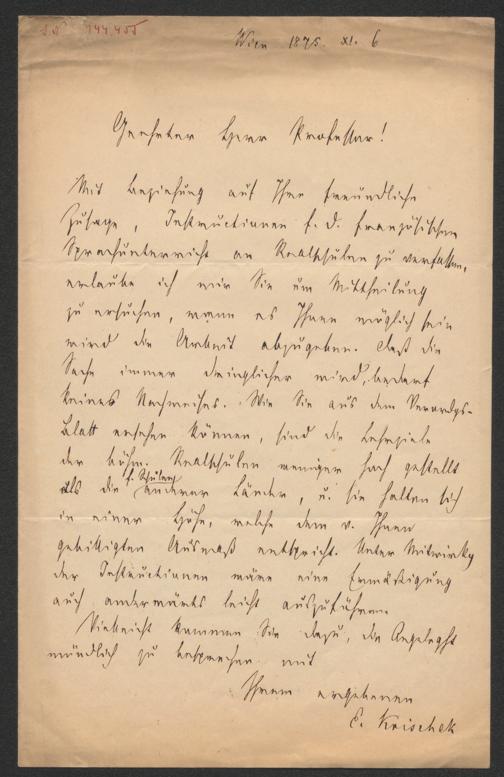 I.N. 144.455
Wien 1875. XI. 6
Geehrter Herr Professor!
Mit Beziehung auf Ihre freundliche
Zusage, Instructionen f. d. französischen
Sprachunterricht an Realschulen zu verfassen,
erlaube ich mir Sie um Mittheilung
zu ersuchen, wann es Ihnen möglich sein
wird die Arbeit abzugeben. Daß die
Sache immer dringlicher wird, bedarf
keines Nachweises. Wie Sie aus dem Verordgs-
Blatt ersehen können, sind die Lehrziele
der böhm. Realschulen weniger hoch gestellt
als die f. Schulen anderer Länder, u. sie halten sich
in einer Höhe, welche dem v. Ihnen
gebilligten Ausmaß entspricht. Unter Mitwirkg
der Instructionen wäre eine Ermäßigung
auch anderwärts leicht auszuführen.
Vielleicht kommen Sie dazu, die Angeleght
mündlich zu besprechen mit
Ihrem ergebenen
E. Krischek